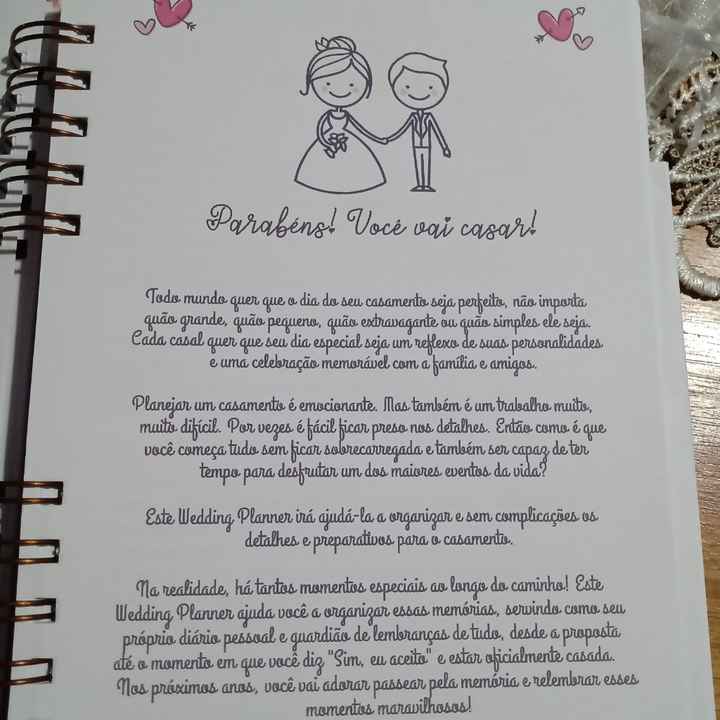 Parabéns! Você vai casar!
Todo mundo quer que o dia do seu casamento seja perfeito, não importa
quão grande, quão pequeno, quão extravagante ou quão simples ele seja.
Cada casal quer que seu dia especial seja um reflexo de suas personalidades
e uma celebração memorável com a família e amigos.
Planejar um casamento é emocionante. Mas também é um trabalho muito,
muito difícil. Por vezes é fácil ficar preso nos detalhes. Então como é que
você começa tudo sem ficar sobrecarregada e também ser capaz de ter
tempo para desfrutar um dos maiores eventos da vida?
Este Wedding Planner irá ajudá-la a organizar e sem complicações os
detalhes e preparativos para o casamento.
Na realidade, há tantos momentos especiais ao longo do caminho! Este
Wedding Planner ajuda você a organizar essas memórias, servindo como seu
próprio diário pessoal e guardião de lembranças de tudo, desde a proposta
até o momento em que você diz "Sim, eu aceito" e estar oficialmente casada.
Nos próximos anos, você vai adorar passear pela memória e relembrar esses
momentos maravilhosos!